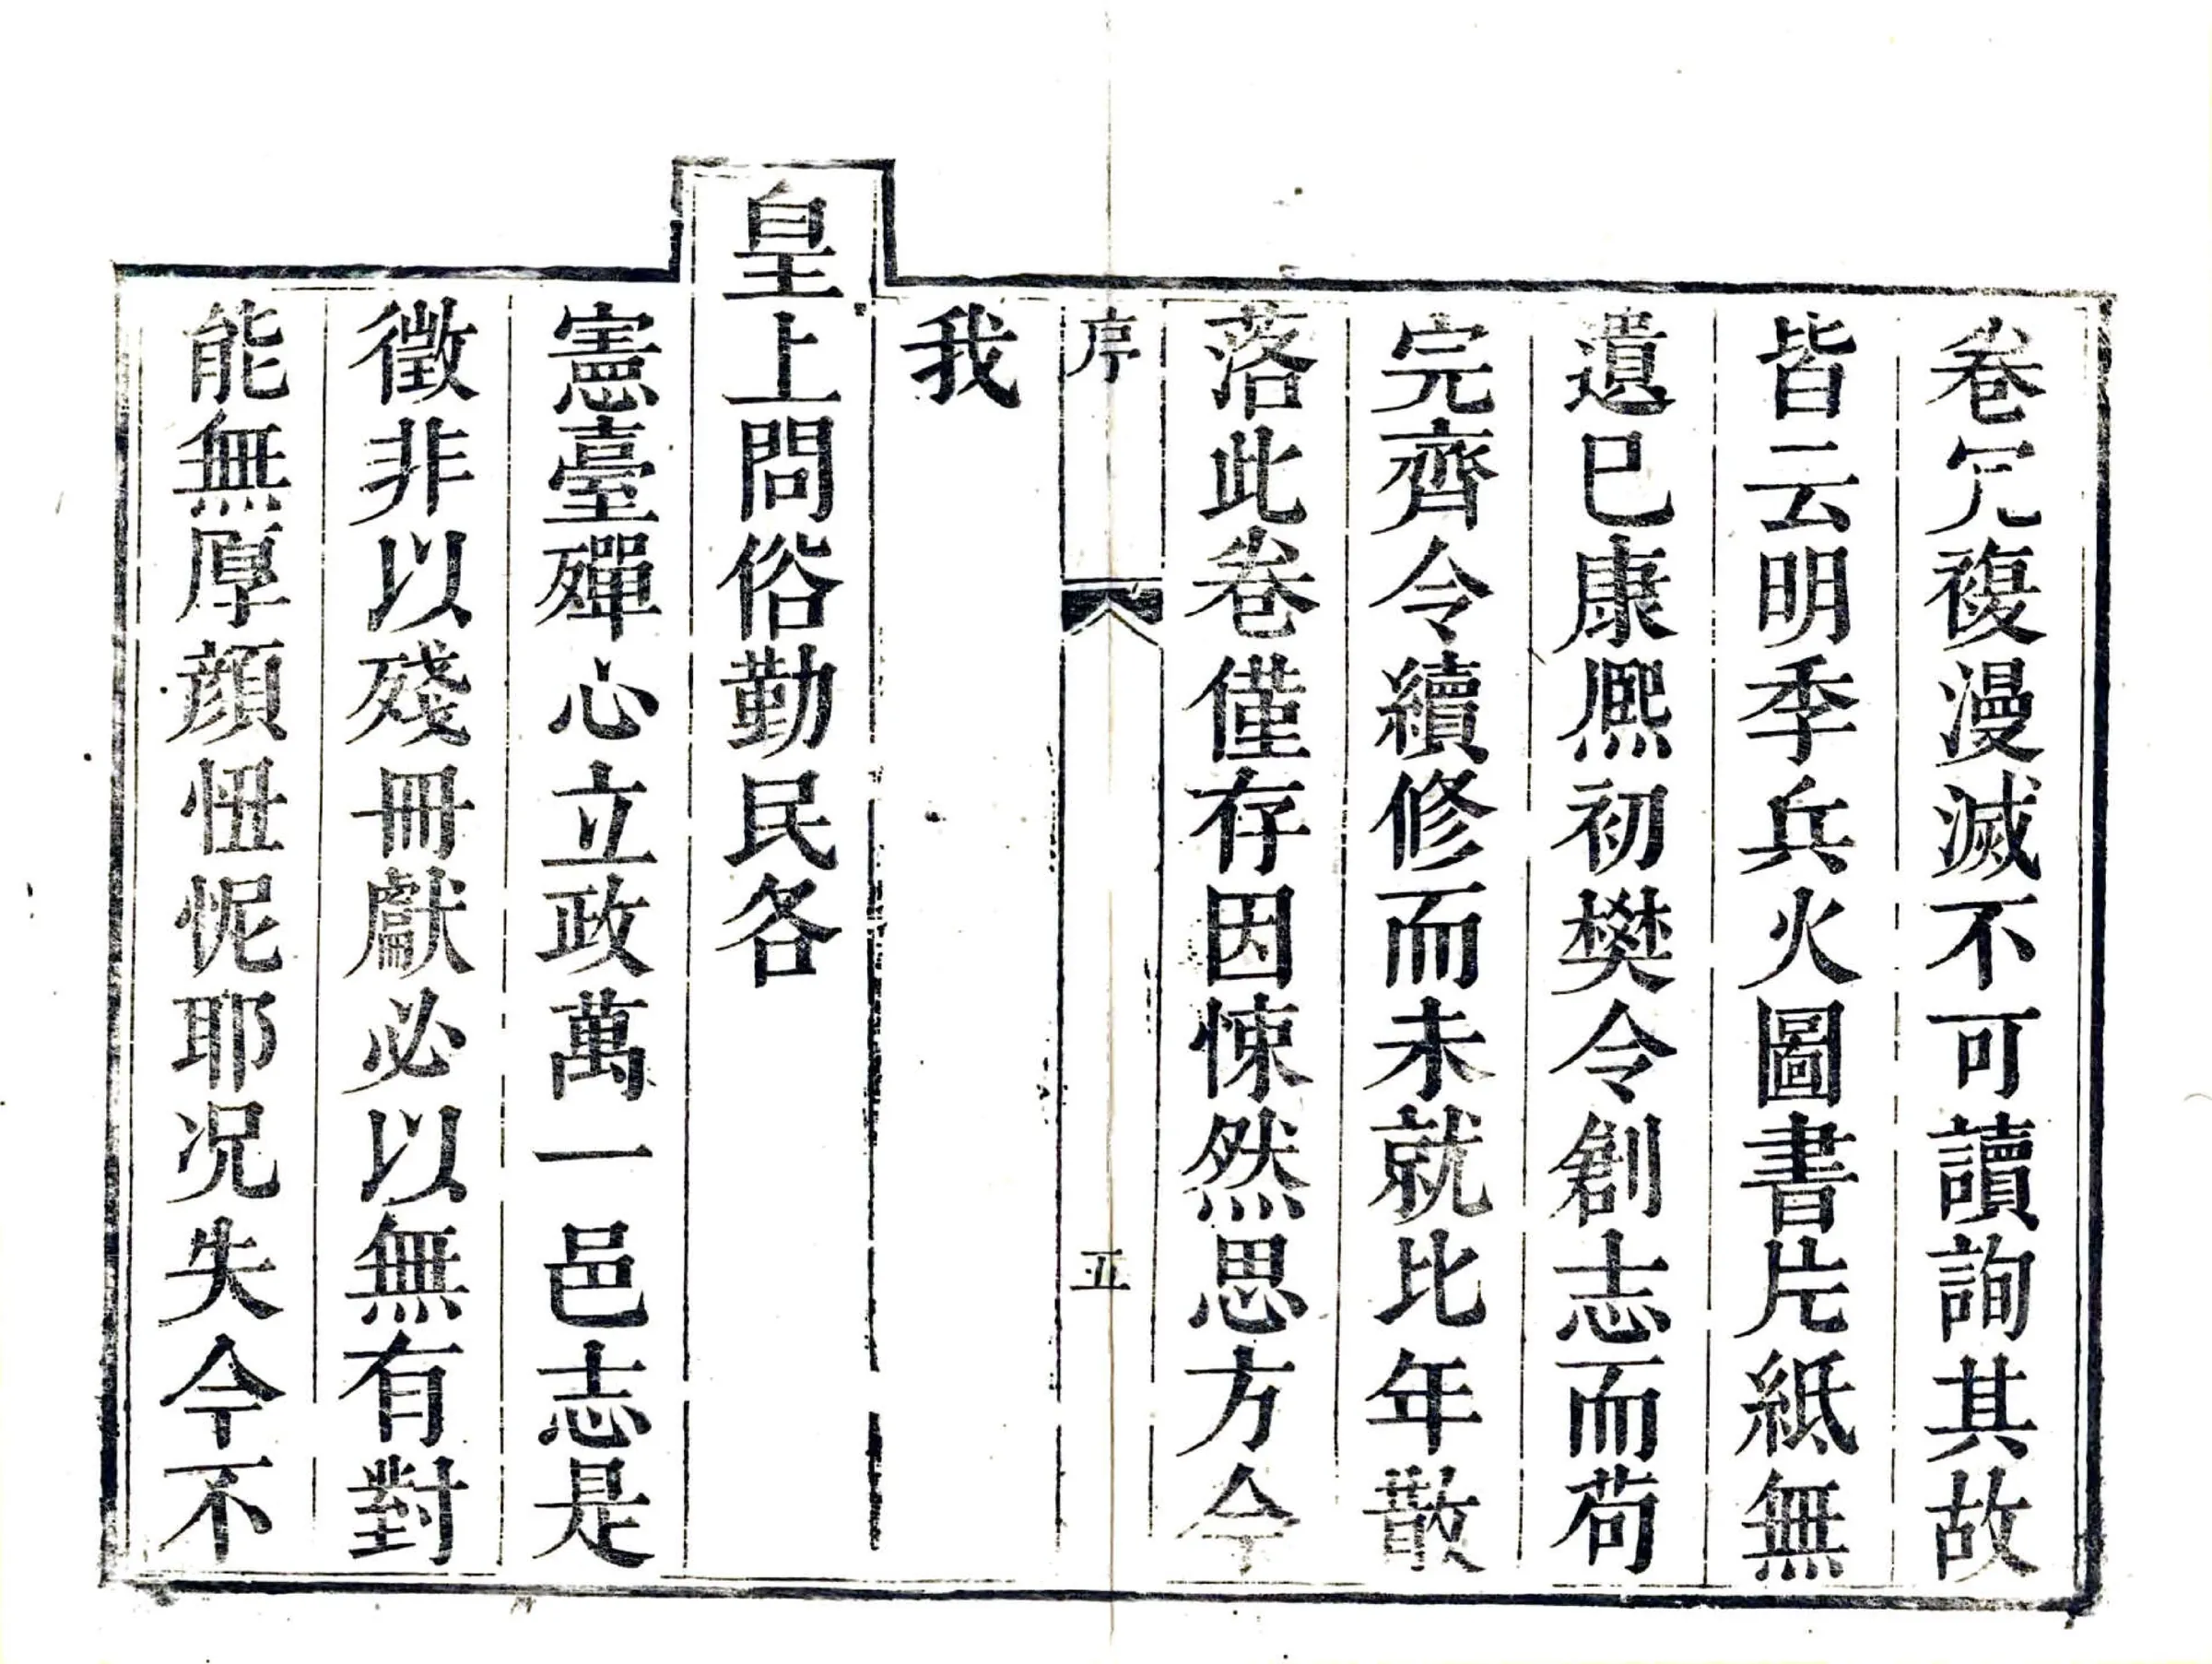 卷冗複漫滅不可讀詢其故
皆云明季兵火圖書片紙無
遺已康熙初樊令創志而苟
完齊令續修而未就比年散
落此卷僅存因悚然思方今
序 五
我
皇上問俗勤民各
憲臺殫心立政萬一邑志是
徵非以殘冊獻必以無有對
能無厚顔忸怩耶况失今不